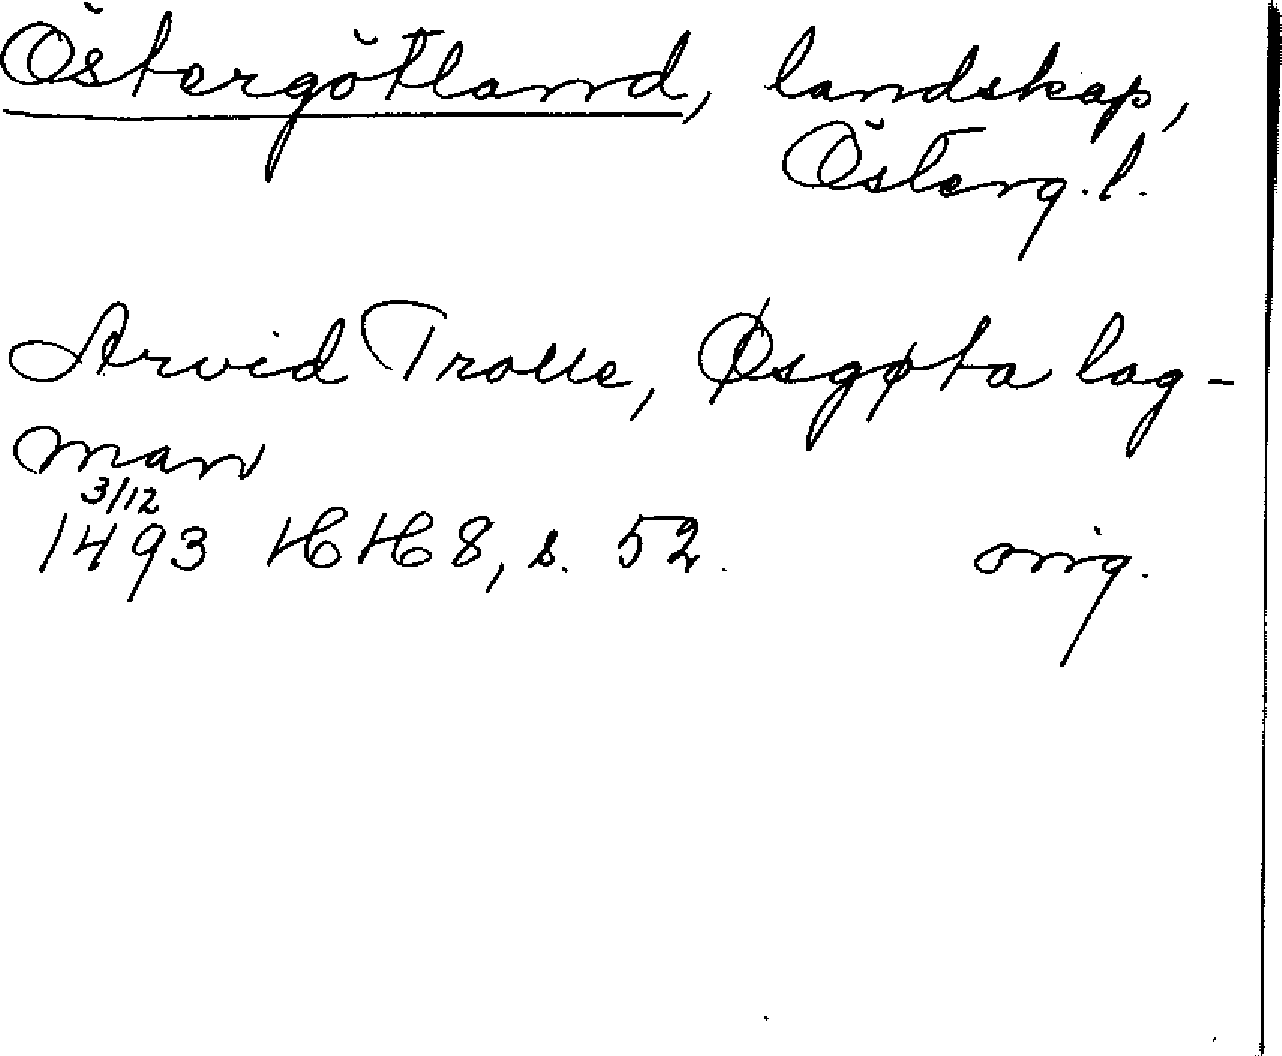 Östergötland, landskap,
Österg. l.
Arvid Trolle, Øsgøta lag-
man
3/12
1493 HH 8, s. 52. orig.